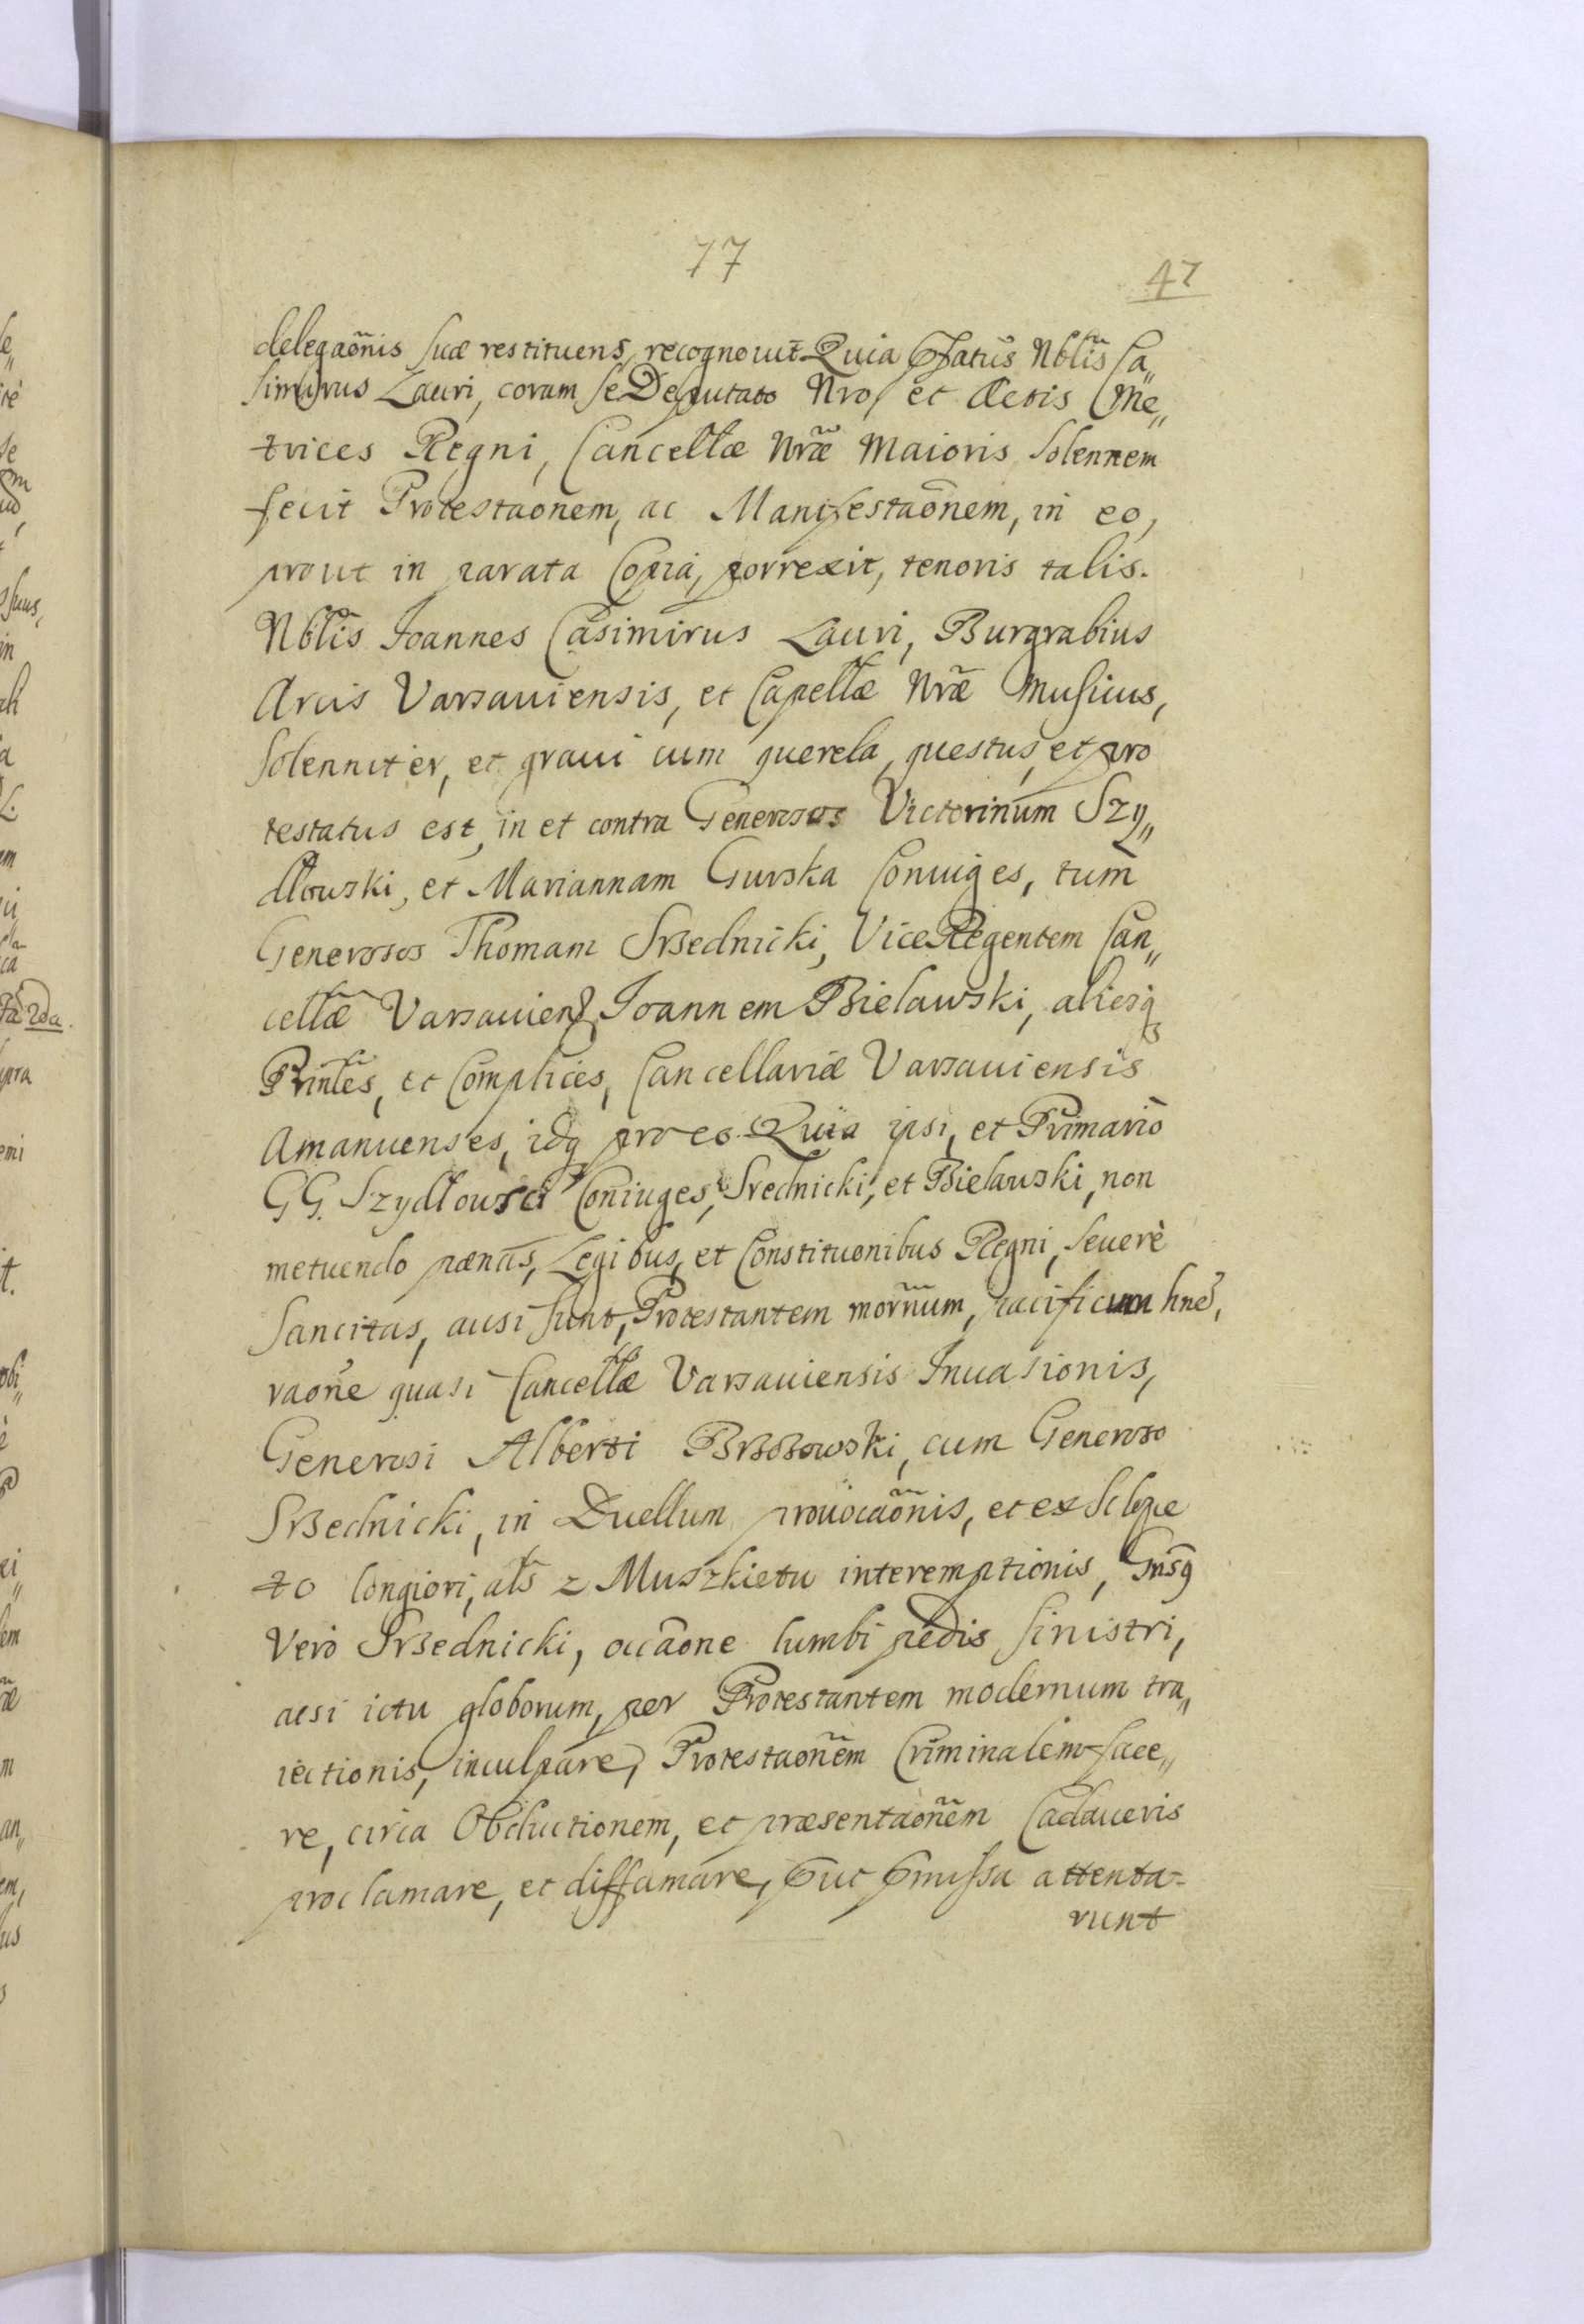 77
47
delegaonis suæ restituens, recognouit Quia Pfatus Nblis Ca„
simirus Lauri, coram se Deputato Nro, et Actis Me„
trices Regni, Cancellæ Nræ Maioris solennem
fecit Protestaonem, ac Manifestaonem, in eo,
prout in parata Copia, porrexit, tenoris talis.
Nblis Ioannes Casimirus Lauri, Burgrabius
Arcis Varsauiensis, et Capellæ Nræ Musicus,
solenniter, et graui cum querela, questus, et pro
testatus est, in et contra Generosos Victorinum Szy„
dłowski, et Mariannam Gurska Coniuges, tum
Generosos Thomam Srzednicki, ViceRegentem Can„
cellæ Varsauien, Ioannem Bielawski, aliosq
Prinles, et Complices, Cancellariæ Varsauiensis
Amanuenses, idq pro eo. Quia ipsi, et Primario
GG. Szydłowscÿ Coniuges, Srednicki, et Bielawski, non
metuendo pænas, Legibus, et Constituonibus Regni, seuerè
sancitas, ausi sunt, Protestantem mornum, pacificum hne,
raone quasi Cancellæ Varsauiensis Inuasionis,
Generosi Alberti Brzozowski, cum Generoso
Srzednicki, in Duellum prouocaonis, et ex Sclope
to longiori, als z Muszkietu interemptionis, Gnsq
Vero Srzednicki, occaone lumbi pedis sinistri,
acsi ictu globorum, per Protestantem modernum tra„
iectionis, inculpare, Protestaonem Criminalem face„
re, circa Obductionem, et præsentaonem Cadaueris
proclamare, et diffamare, put pmissa attenta-
runt